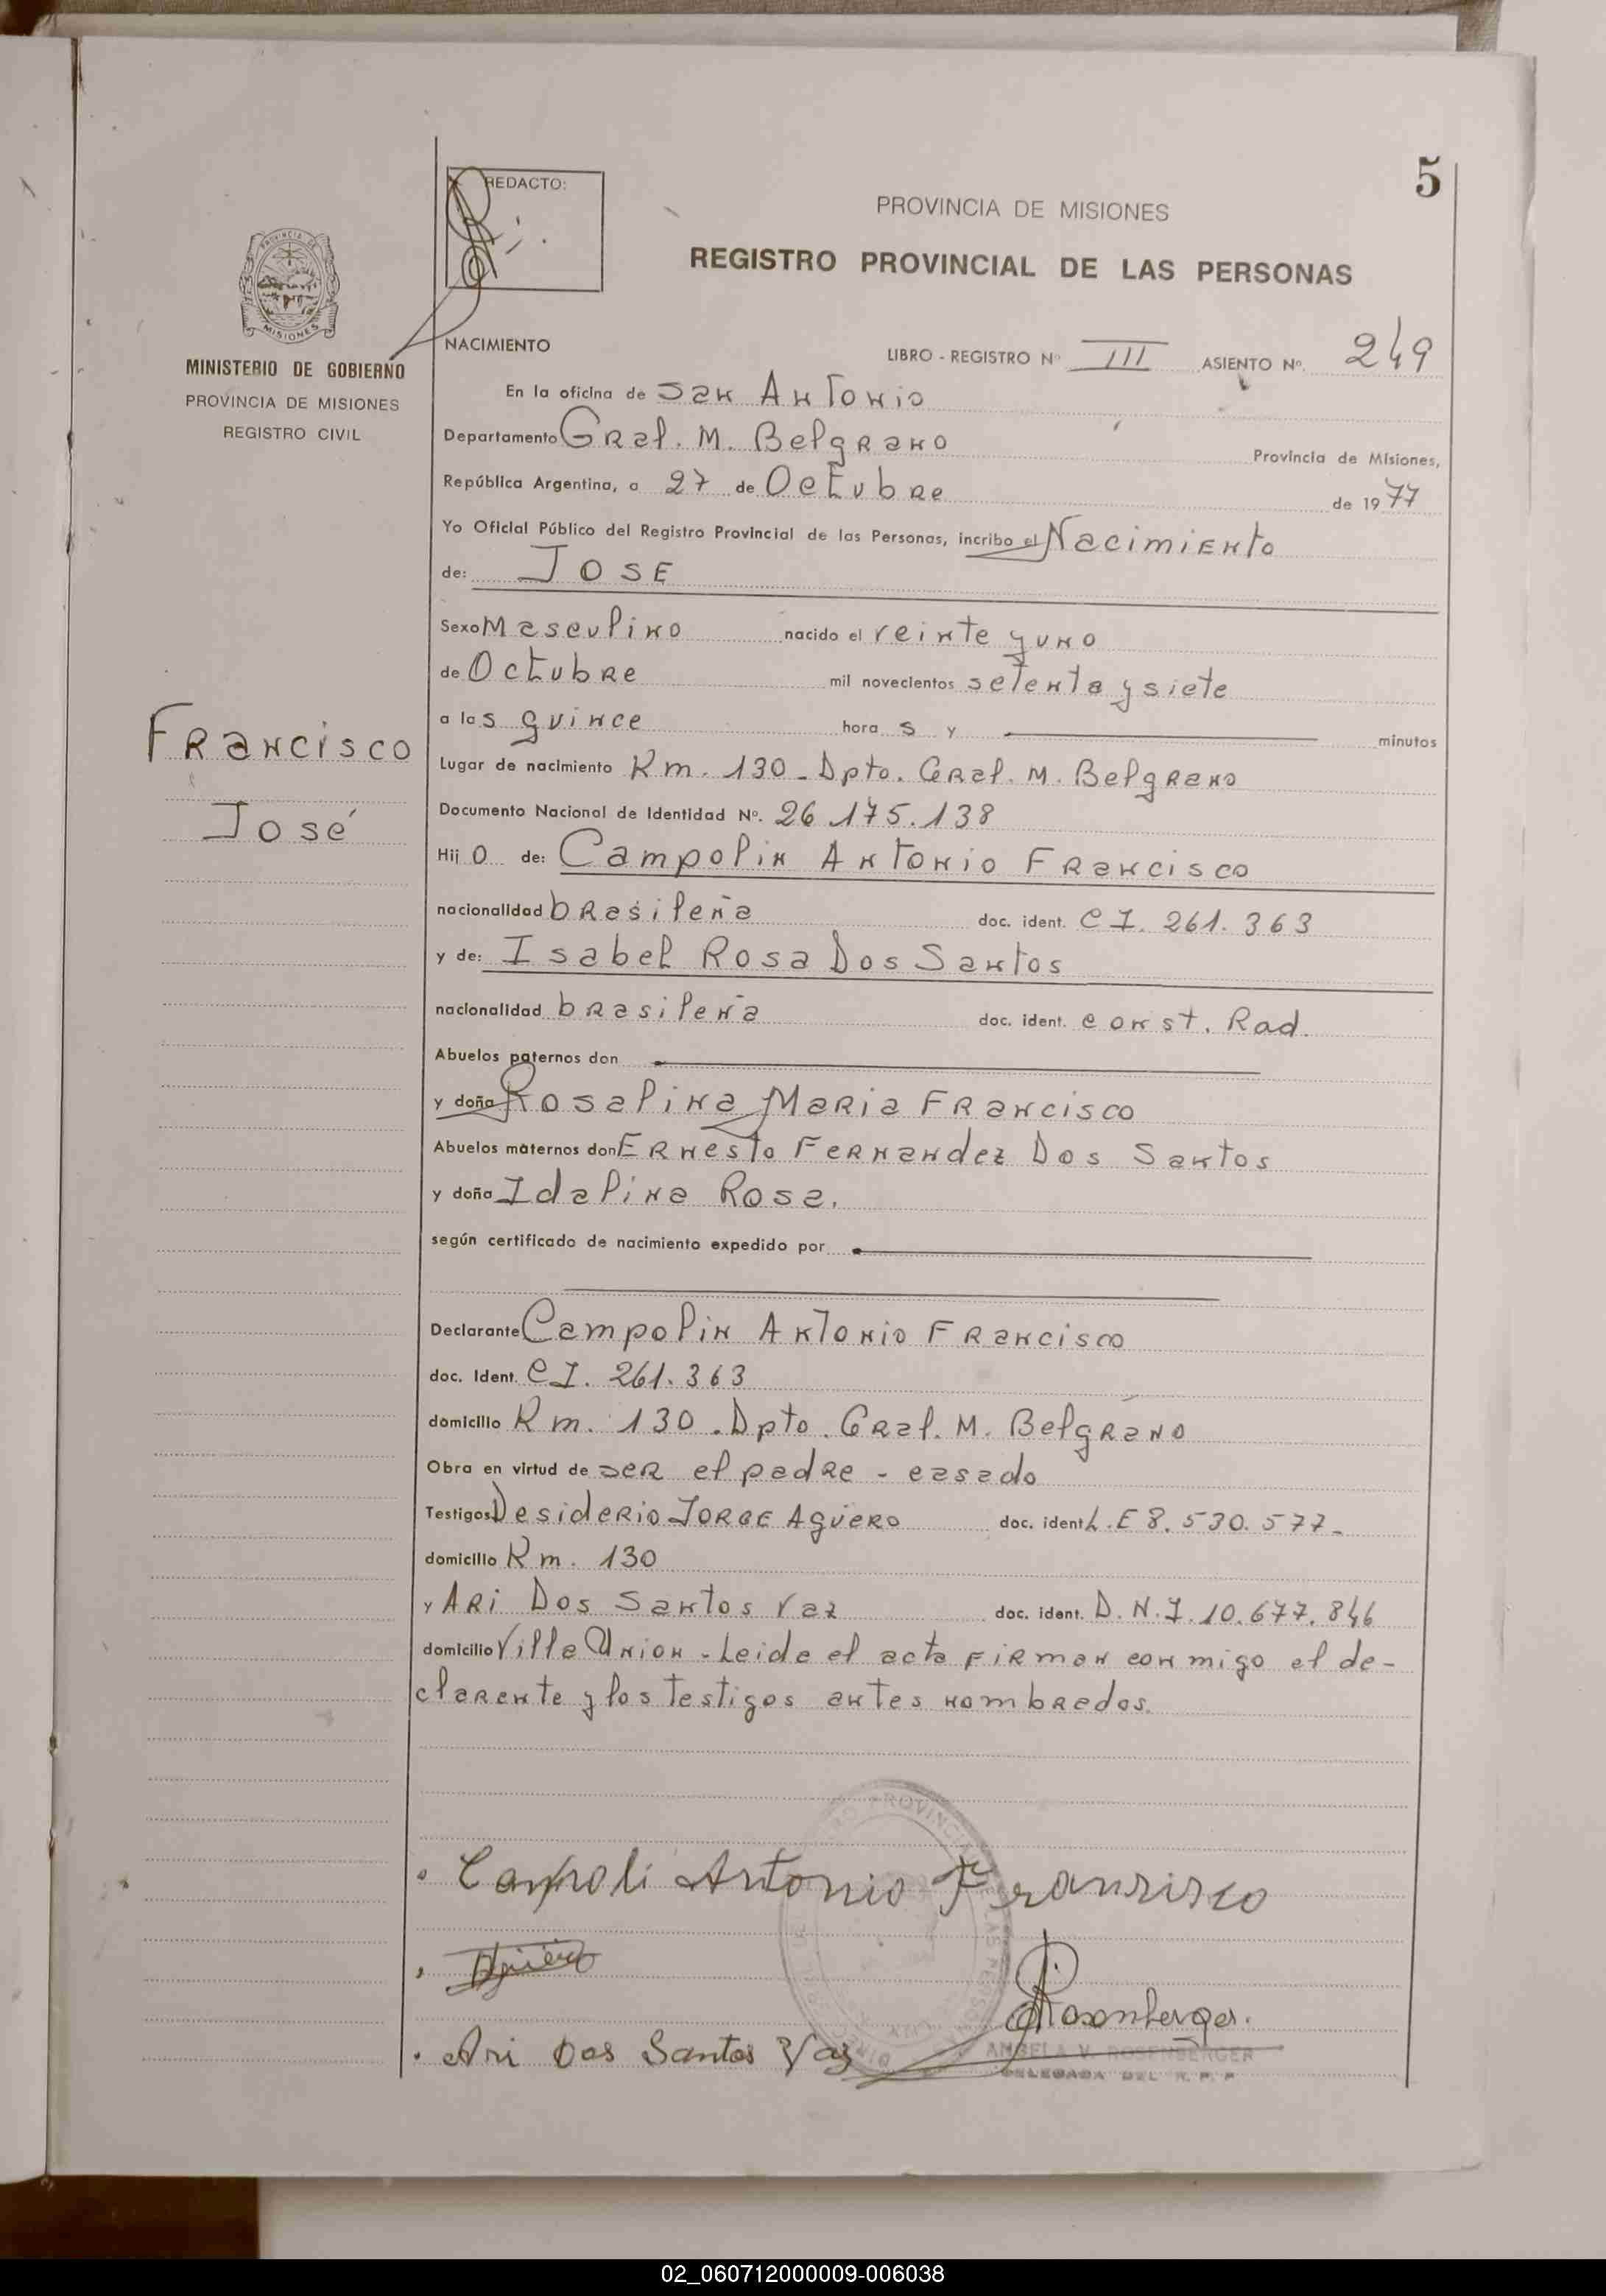 5
REDACTO:
PROVINCIA DE MISIONES
REGISTRO PROVINCIAL DE LAS PERSONAS
PROVINCIA DE
MISIONES
MINISTERIO DE GOBIERNO
PROVINCIA DE MISIONES
REGISTRO CIVIL
Francisco
José
NACIMIENTO
LIBRO - REGISTRO Nº III ASIENTO Nº. 249
En la oficina de San Antonio
Departamento Gral. M. Belgrano Provincia de Misiones,
República Argentina, a 27 de Octubre de 1977
Yo Oficial Público del Registro Provincial de las Personas, incribo el Nacimiento
de: JOSE
Sexo Masculino nacido el veinte y uno
de Octubre mil novecientos setenta y siete
a las quince hora s y minutos
Lugar de nacimiento Km. 130 - Dpto. Gral. M. Belgrano
Documento Nacional de Identidad Nº. 26.175.138
Hij o de: Campolin Antonio Francisco
nacionalidad brasileña doc. ident. C I. 261.363
y de: Isabel Rosa Dos Santos
nacionalidad brasileña doc. ident. const. Rad.
Abuelos paternos don
y doña Rosalina Maria Francisco
Abuelos maternos don Ernesto Fernandez Dos Santos
y doña Idalina Rosa.
según certificado de nacimiento expedido por
Declarante Campolin Antonio Francisco
doc. Ident. C I. 261.363
domicilio Km. 130 - Dpto. Gral. M. Belgrano
Obra en virtud de ser el padre - casado
Testigos Desiderio Jorge Agüero doc. ident L.E 8.530.577-
domicilio Km. 130
y Ari Dos Santos Vaz doc. ident. D.N.I. 10.677.846
domicilio Villa Union - Leida el acta firman conmigo el de-
clarente y los testigos antes nombrados.
Campoli Antonio Fransisco
Agüero
Rosenberger.
Ari Dos Santos Vaz
ANGELA V. ROSENBERGER
DELEGADA DEL R. P. P
02_060712000009-006038